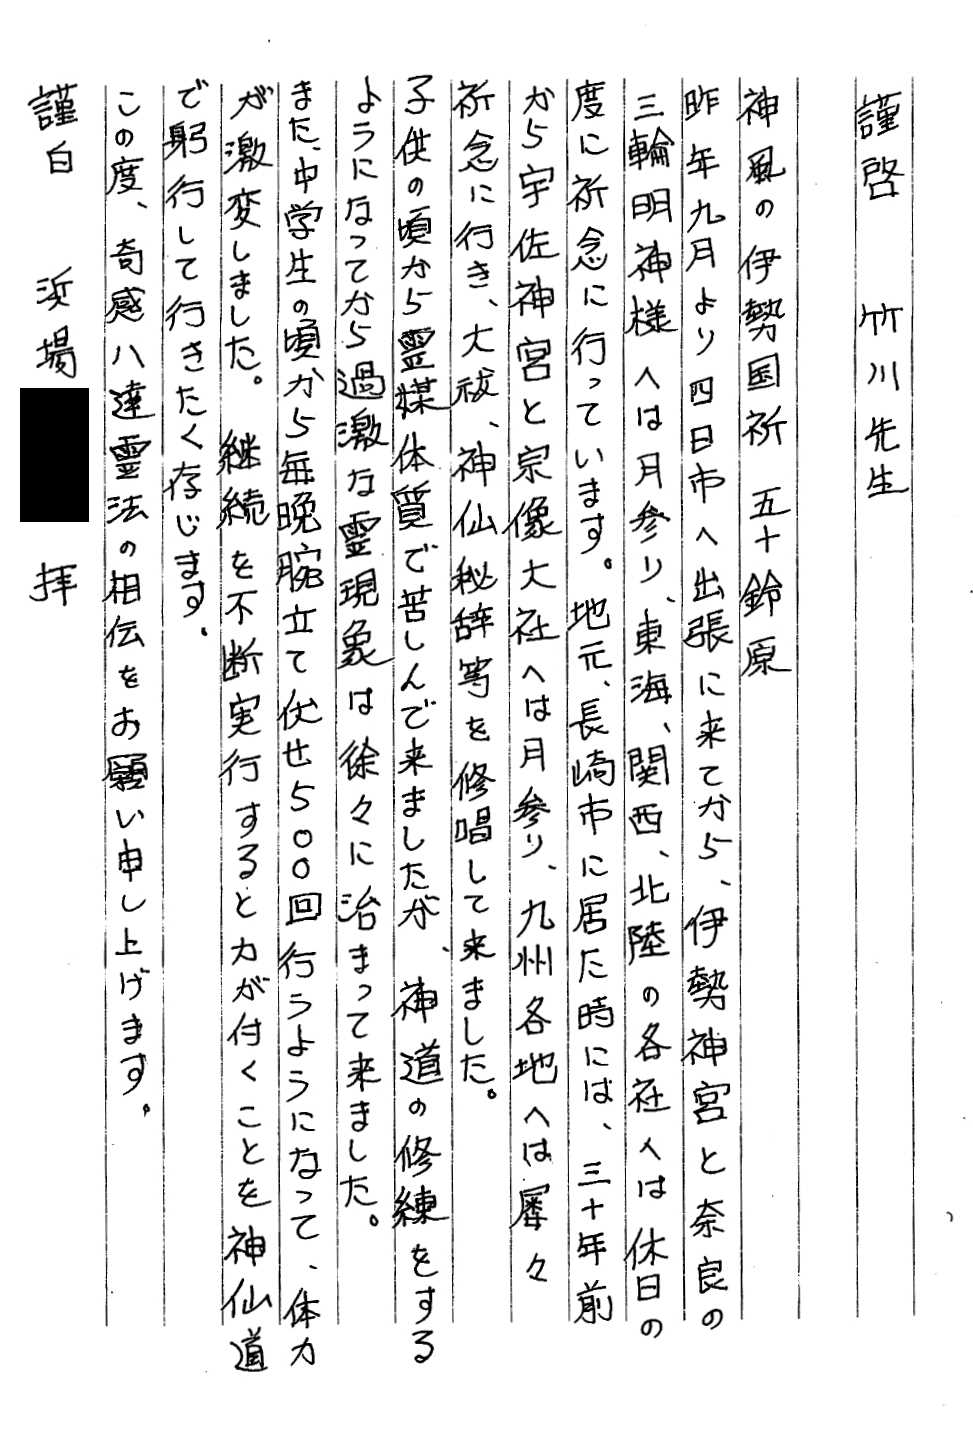 謹啓　竹川先生
神風の伊勢国祈　五十鈴原
昨年九月より四日市へ出張に来てから、伊勢神宮と奈良の
三輪明神様へは月参り、東海、関西、北陸の各社へは休日の
度に祈念に行っています。地元、長崎市に居た時には、三十年前
から宇佐神宮と宗像大社へは月参り、九州各地へは屡々
祈念に行き、大祓、神仙秘辞等を修唱して来ました。
子供の頃から霊媒体質で苦しんで来ましたが、神道の修練をする
ようになってから過激な霊現象は徐々に治まって来ました。
また、中学生の頃から毎晩腕立て伏せ500回行うようになって、体力
が激変しました。継続を不断実行すると力が付くことを神仙道
で躬行して行きたく存じます。
この度、奇感八達霊法の相伝をお願い申し上げます。
謹白　浜場　拝